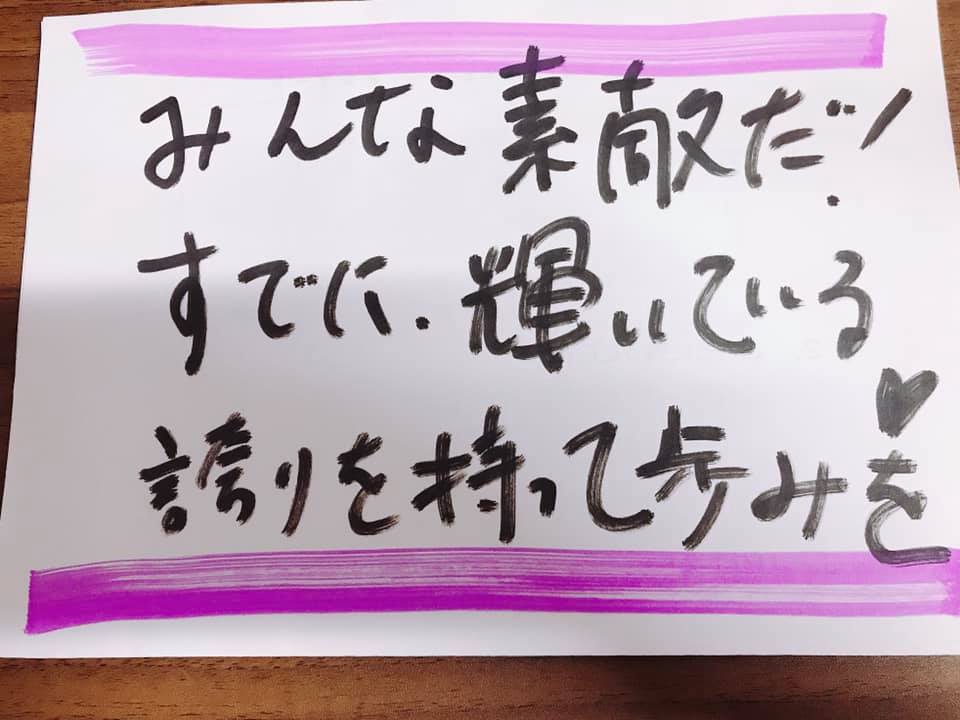 みんな素敵だ!
すでに.輝いている♥
誇りを持って歩みを